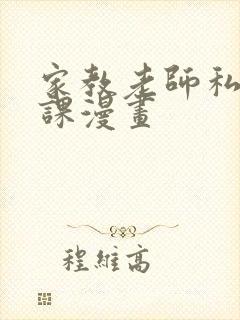 家教老師私
課漫畫
程維高